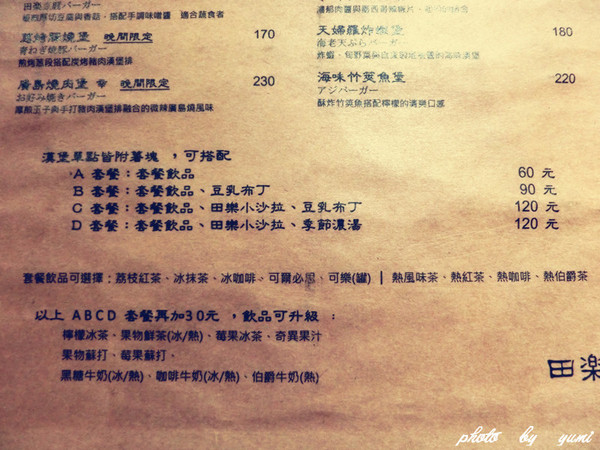 蔥烤漢堡 晚間限定 170
青ねぎ焼豚バーガー
廣島燒肉堡 晚間限定 230
お好み焼きバーガー
厚煎玉子與手打豬肉漢堡排融合的微辣廣島燒風味
天婦羅炸蝦堡 180
海老天ぷらバーガー
海味竹筴魚堡 220
アジバーガー
酥炸竹筴魚搭配檸檬的清爽口感
漢堡單點皆附薯塊 ，可搭配
A 套餐：套餐飲品 60 元
B 套餐：套餐飲品、豆乳布丁 90 元
C 套餐：套餐飲品、田樂小沙拉、豆乳布丁 120 元
D 套餐：套餐飲品、田樂小沙拉、季節濃湯 120 元
套餐飲品可選擇：荔枝紅茶、冰抹茶、冰咖啡、可爾必思、可樂(罐) | 熱風味茶、熱紅茶、熱咖啡、熱伯爵茶
以上 ABCD 套餐再加30元 ，飲品可升級 ：
檸檬冰茶、果物鮮茶(冰/熱)、莓果冰茶、奇異果汁
果物蘇打、莓果蘇打、
黑糖牛奶(冰/熱)、咖啡牛奶(冰/熱)、伯爵牛奶(熱)
田楽
photo by yumi